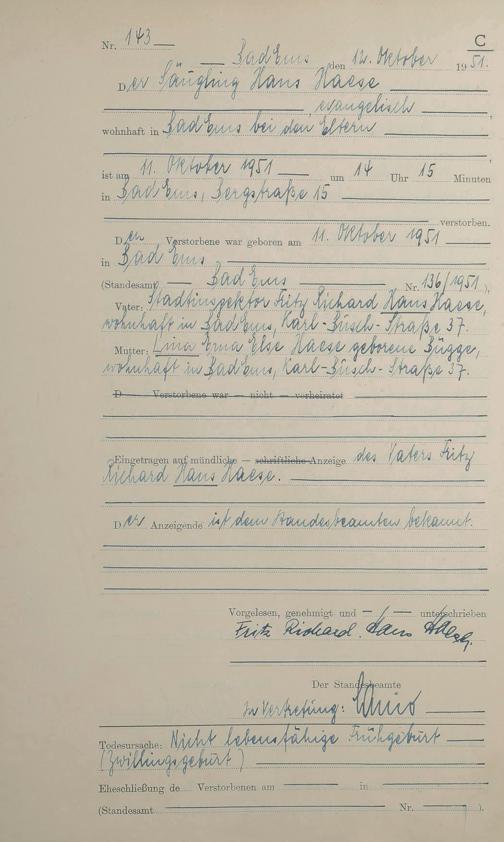 C
Nr. 143
Bad Ems den 12. Oktober 1951.
Der Säugling Hans Haese
, evangelisch,
wohnhaft in Bad Ems bei den Eltern
,
ist am 11. Oktober 1951 um 14 Uhr 15 Minuten
in Bad Ems, Bergstraße 15
verstorben.
Der Verstorbene war geboren am 11. Oktober 1951
in Bad Ems
(Standesamt Bad Ems Nr. 136/1951).
Vater: Stadtinspektor Fritz Richard Hans Haese,
wohnhaft in Bad Ems, Karl-Busch-Straße 37.
Mutter: Lina Erna Else Haese geborene Bügge,
wohnhaft in Bad Ems, Karl-Busch-Straße 37.
D — Verstorbene war — nicht — verheiratet
Eingetragen auf mündliche — schriftliche Anzeige des Vaters Fritz
Richard Hans Haese.
Der Anzeigende ist dem Standesbeamten bekannt.
Vorgelesen, genehmigt und unterschrieben
Fritz Richard Hans Haese.
Der Standesbeamte
In Vertretung:
Todesursache: Nicht lebensfähige Frühgeburt
(Zwillingsgeburt)
Eheschließung de Verstorbenen am in
(Standesamt Nr. ).